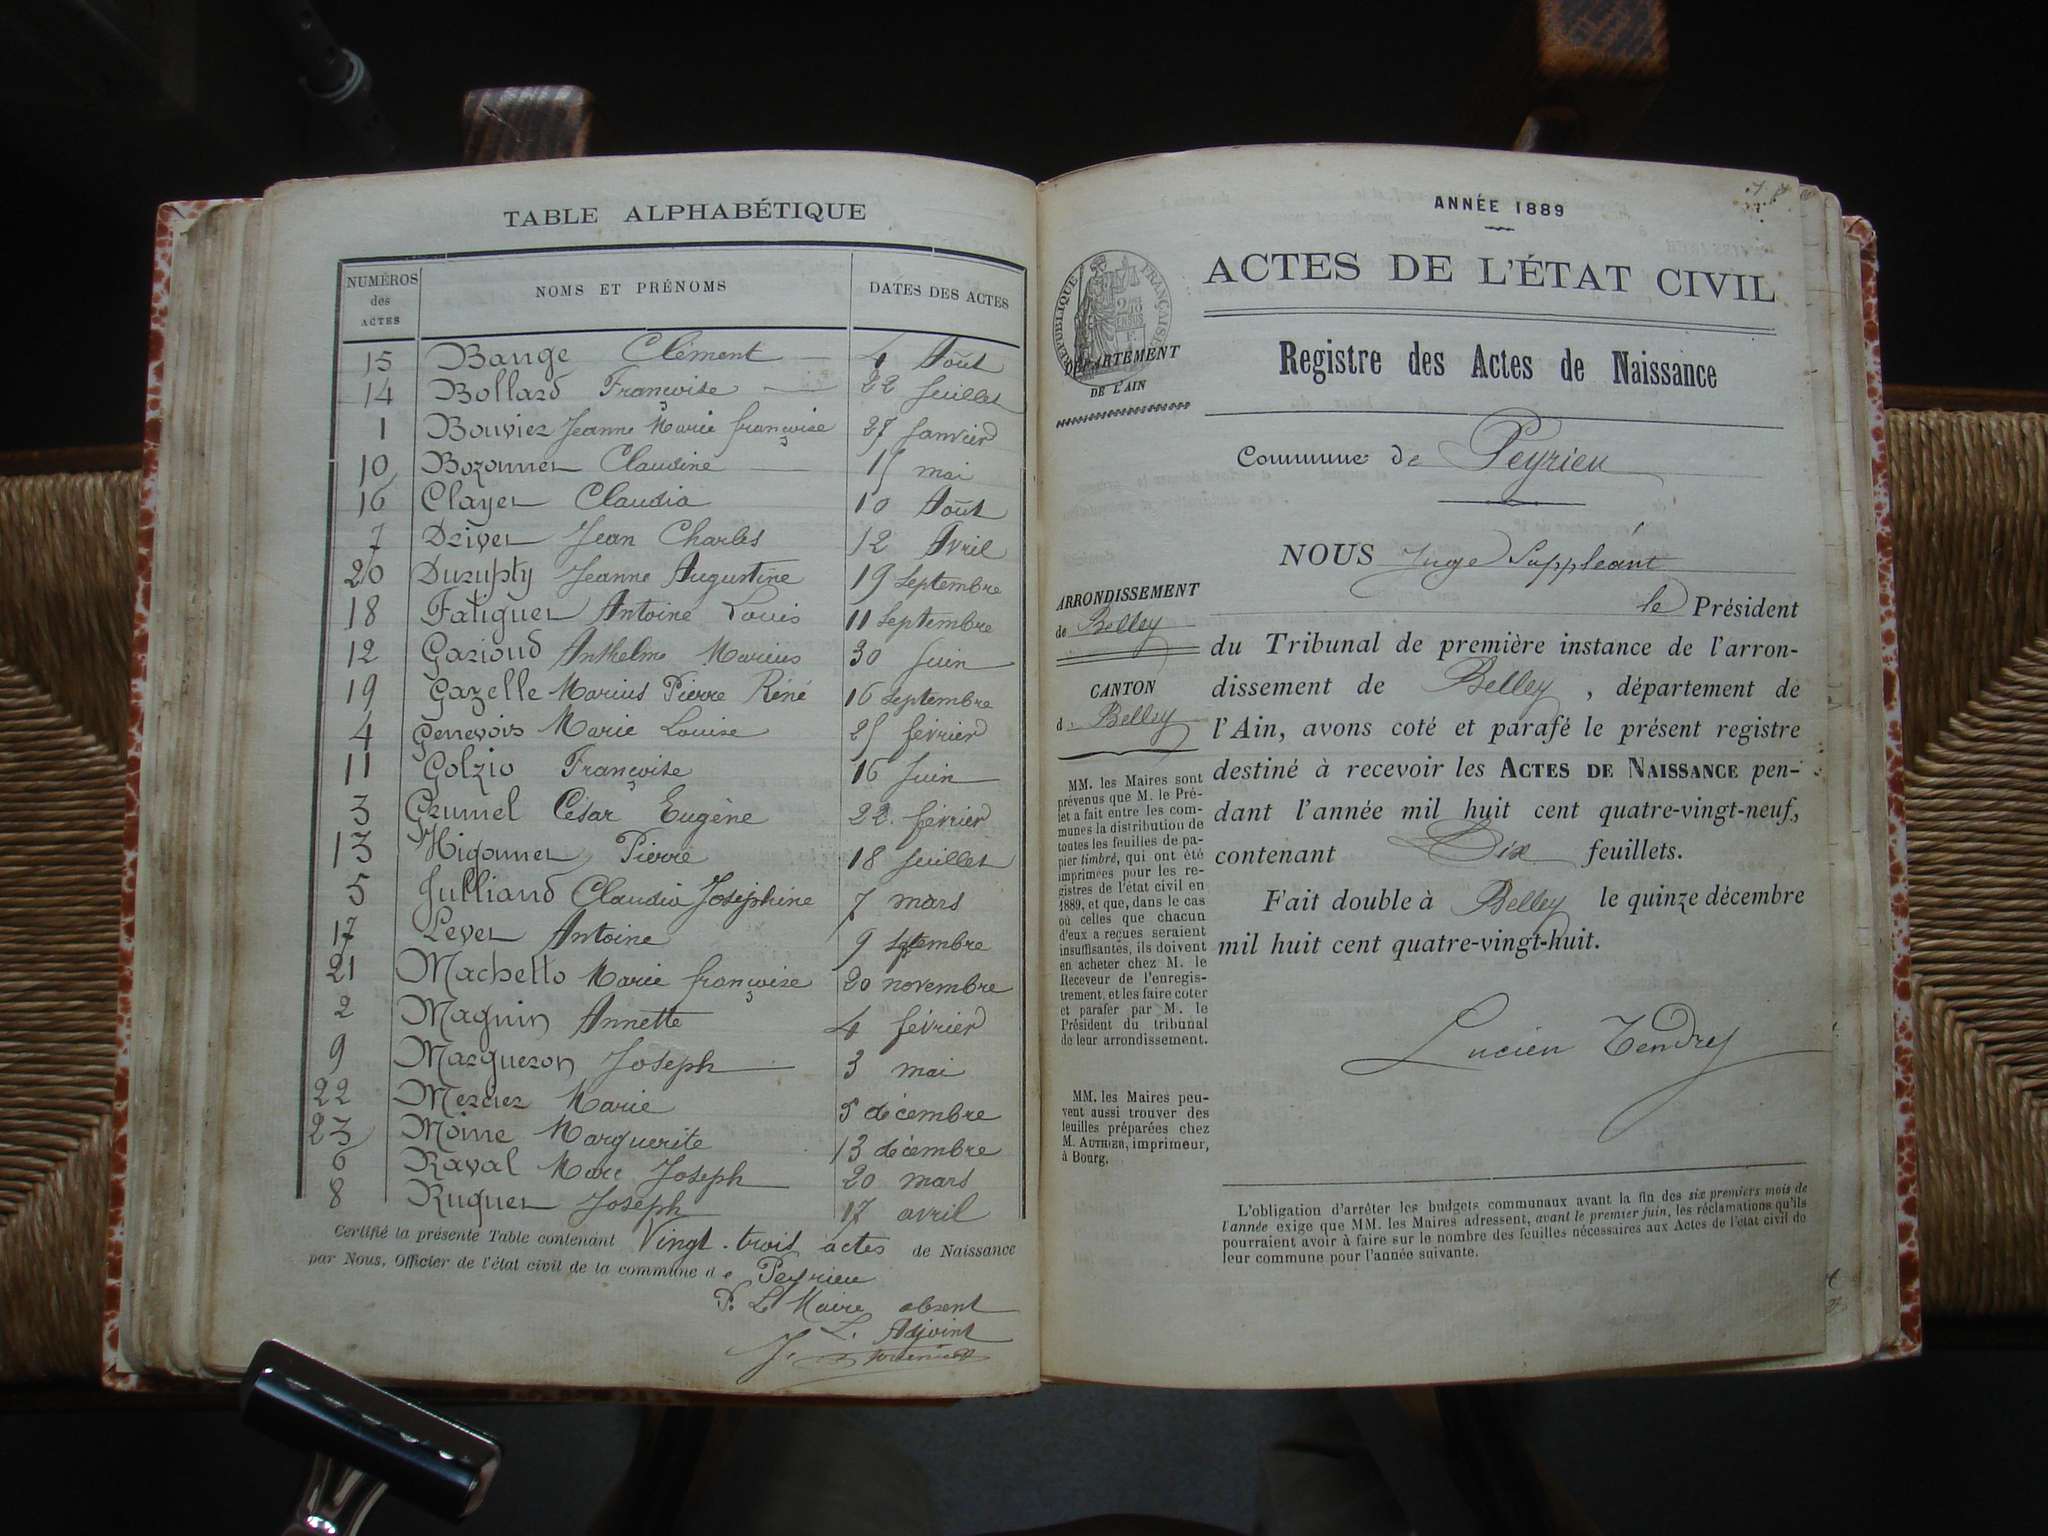 TABLE ALPHABÉTIQUE
NUMÉROS des ACTES
NOMS ET PRÉNOMS
DATES DES ACTES
15 Bange Clément 4 Août
14 Bollard Françoise 22 Juillet
1 Bouvier Jeanne Marie françoise 27 Janvier
10 Bozonnet Claudine 15 mai
16 Clayet Claudia 10 Août
7 Drivet Jean Charles 12 Avril
20 Durupty Jeanne Augustine 19 Septembre
18 Fatiguet Antoine Louis 11 Septembre
12 Garioud Anthelme Marius 30 Juin
19 Gazelle Marius Pierre Réné 16 Septembre
4 Genevois Marie Louise 25 février
11 Golzio Françoise 16 Juin
3 Grumel César Eugène 22 février
13 Higonnet Pierre 18 Juillet
5 Julliand Claudia Joséphine 7 mars
17 Levet Antoine 9 Septembre
21 Machetto Marie françoise 20 novembre
2 Magnin Annette 4 février
9 Margueron Joseph 3 mai
22 Mercier Marie 5 décembre
23 Moine Marguerite 13 décembre
6 Raval Marc Joseph 20 mars
8 Ruguet Joseph 17 avril
Certifié la présente Table contenant Vingt-trois actes de Naissance
par Nous, Officier de l'état civil de la commune de Peyrieu
P. Le Maire absent
L. Adjoint
ANNÉE 1889
ACTES DE L'ÉTAT CIVIL
RÉPUBLIQUE FRANÇAISE
DÉPARTEMENT
DE L'AIN
Registre des Actes de Naissance
Commune de Peyrieu
NOUS Juge Suppléant
le Président
du Tribunal de première instance de l'arron-
dissement de Belley, département de
l'Ain, avons coté et parafé le présent registre
destiné à recevoir les ACTES DE NAISSANCE pen-
dant l'année mil huit cent quatre-vingt-neuf,
contenant Dix feuillets.
Fait double à Belley le quinze décembre
mil huit cent quatre-vingt-huit.
Lucien Tendret
ARRONDISSEMENT
de Belley
CANTON
d. Belley
MM. les Maires sont
prévenus que M. le Pré-
fet a fait entre les com-
munes la distribution de
toutes les feuilles de pa-
pier timbré, qui ont été
imprimées pour les re-
gistres de l'état civil en
1889, et que, dans le cas
où celles que chacun
d'eux a reçues seraient
insuffisantes, ils doivent
en acheter chez M. le
Receveur de l'enregis-
trement, et les faire coter
et parafer par M. le
Président du tribunal
de leur arrondissement.
MM. les Maires peu-
vent aussi trouver des
feuilles préparées chez
M. AUTHIER, imprimeur,
à Bourg.
L'obligation d'arrêter les budgets communaux avant la fin des six premiers mois de
l'année exige que MM. les Maires adressent, avant le premier juin, les réclamations qu'ils
pourraient avoir à faire sur le nombre des feuilles nécessaires aux Actes de l'état civil de
leur commune pour l'année suivante.